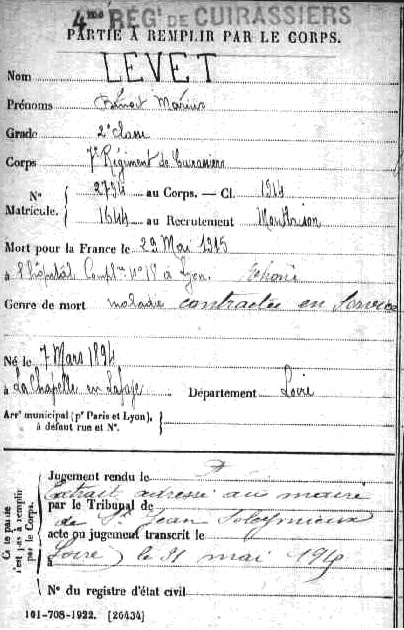 4me RÉGt DE CUIRASSIERS
PARTIE A REMPLIR PAR LE CORPS.
Nom LEVET
Prénoms Benoit Marius
Grade 2e classe
Corps 7e Régiment de Cuirassiers
No Matricule. 2794 au Corps. — Cl. 1914
1644 au Recrutement Montbrison
Mort pour la France le 29 Mai 1915
à l'hôpital Compl. no 18 à Lyon. Rhône
Genre de mort maladie contractée en Service
Né le 7 Mars 1894
à La Chapelle en Lafaye Département Loire
Arrt municipal (pr Paris et Lyon), à défaut rue et No.
Cette partie n'est pas à remplir par le Corps.
Jugement rendu le
Extrait adressé au maire
par le Tribunal de
de St Jean Soleymieux
acte ou jugement transcrit le
Loire) le 31 mai
No du registre d'état civil
101-708-1922. [26434]